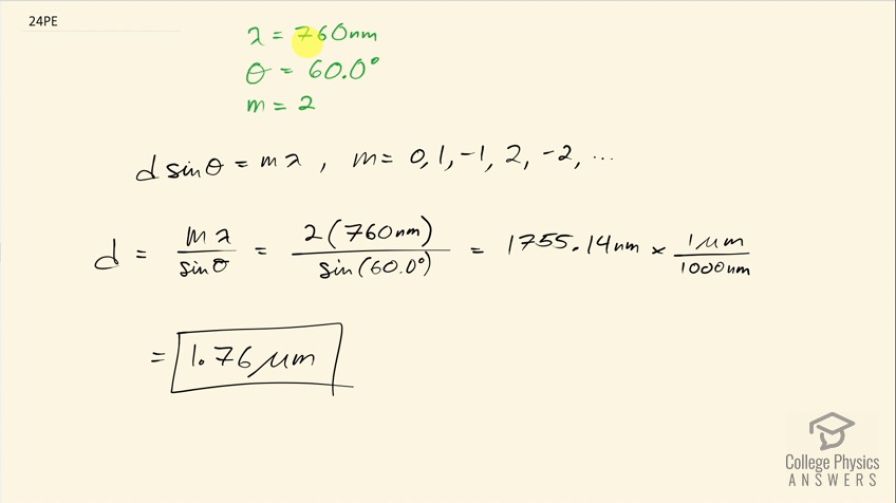 24PE
λ = 760nm
θ = 60.0°
m = 2
d sinθ = mλ , m = 0, 1, -1, 2, -2, ...
d = mλ / sinθ = 2(760nm) / sin(60.0°) = 1755.14nm × 1μm / 1000nm
= 1.76 μm
College Physics
ANSWERS